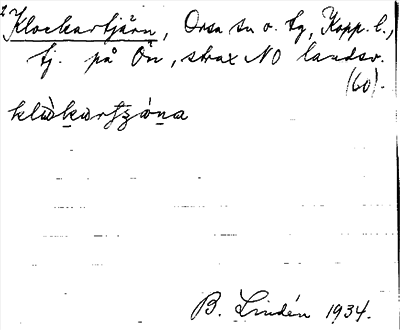 Klockartjärn, Orsa sn o. tg, Kopp. l.,
tj. på Ön, strax NO landsv.
(60).
B. Lindén 1934.